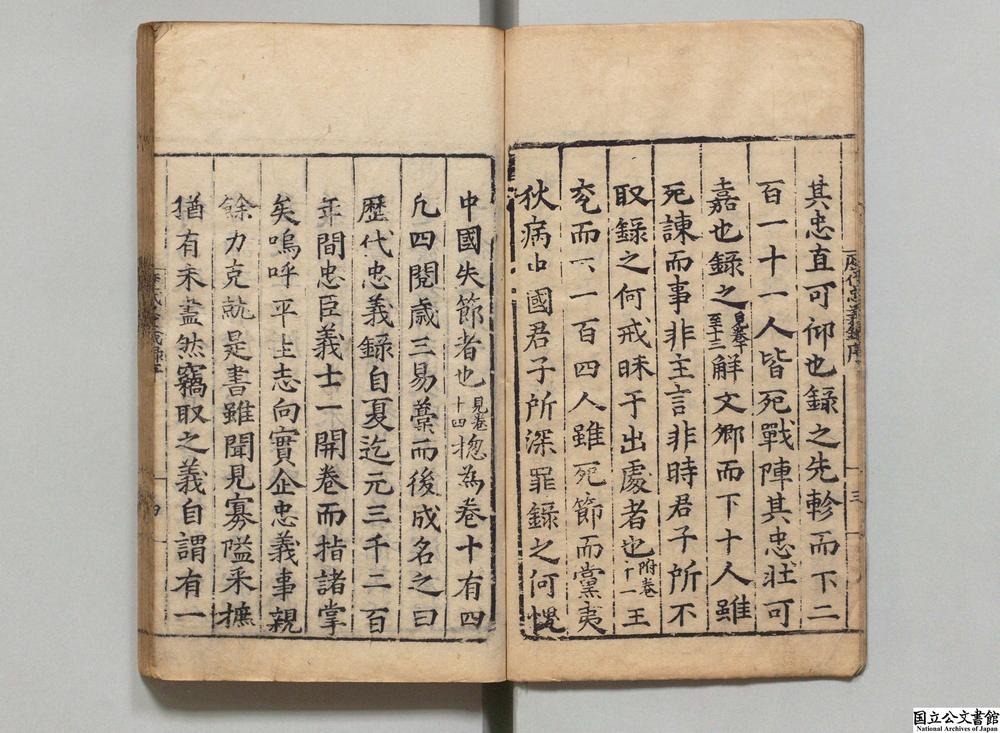 其忠直可仰也錄之先軫而下二
百一十一人皆死戰陣其忠壯可
嘉也錄之見卷十至十三解文卿而下十人雖
死諫而事非主言非時君子所不
取錄之何戒昧于出處者也附卷十一王
兖而下一百四人雖死節而黨夷
狄病中國君子所深罪錄之何愧
中國失節者也見卷十四揔為卷十有四
凡四閱歲三易藁而後成名之曰
歷代忠義錄自夏迄元三千二百
年間忠臣義士一開卷而指諸掌
矣嗚呼平生志向實企忠義事親
餘力克就是書雖聞見寡隘采摭
猶有未盡然竊取之義自謂有一
三
四
国立公文書館
National Archives of Japan